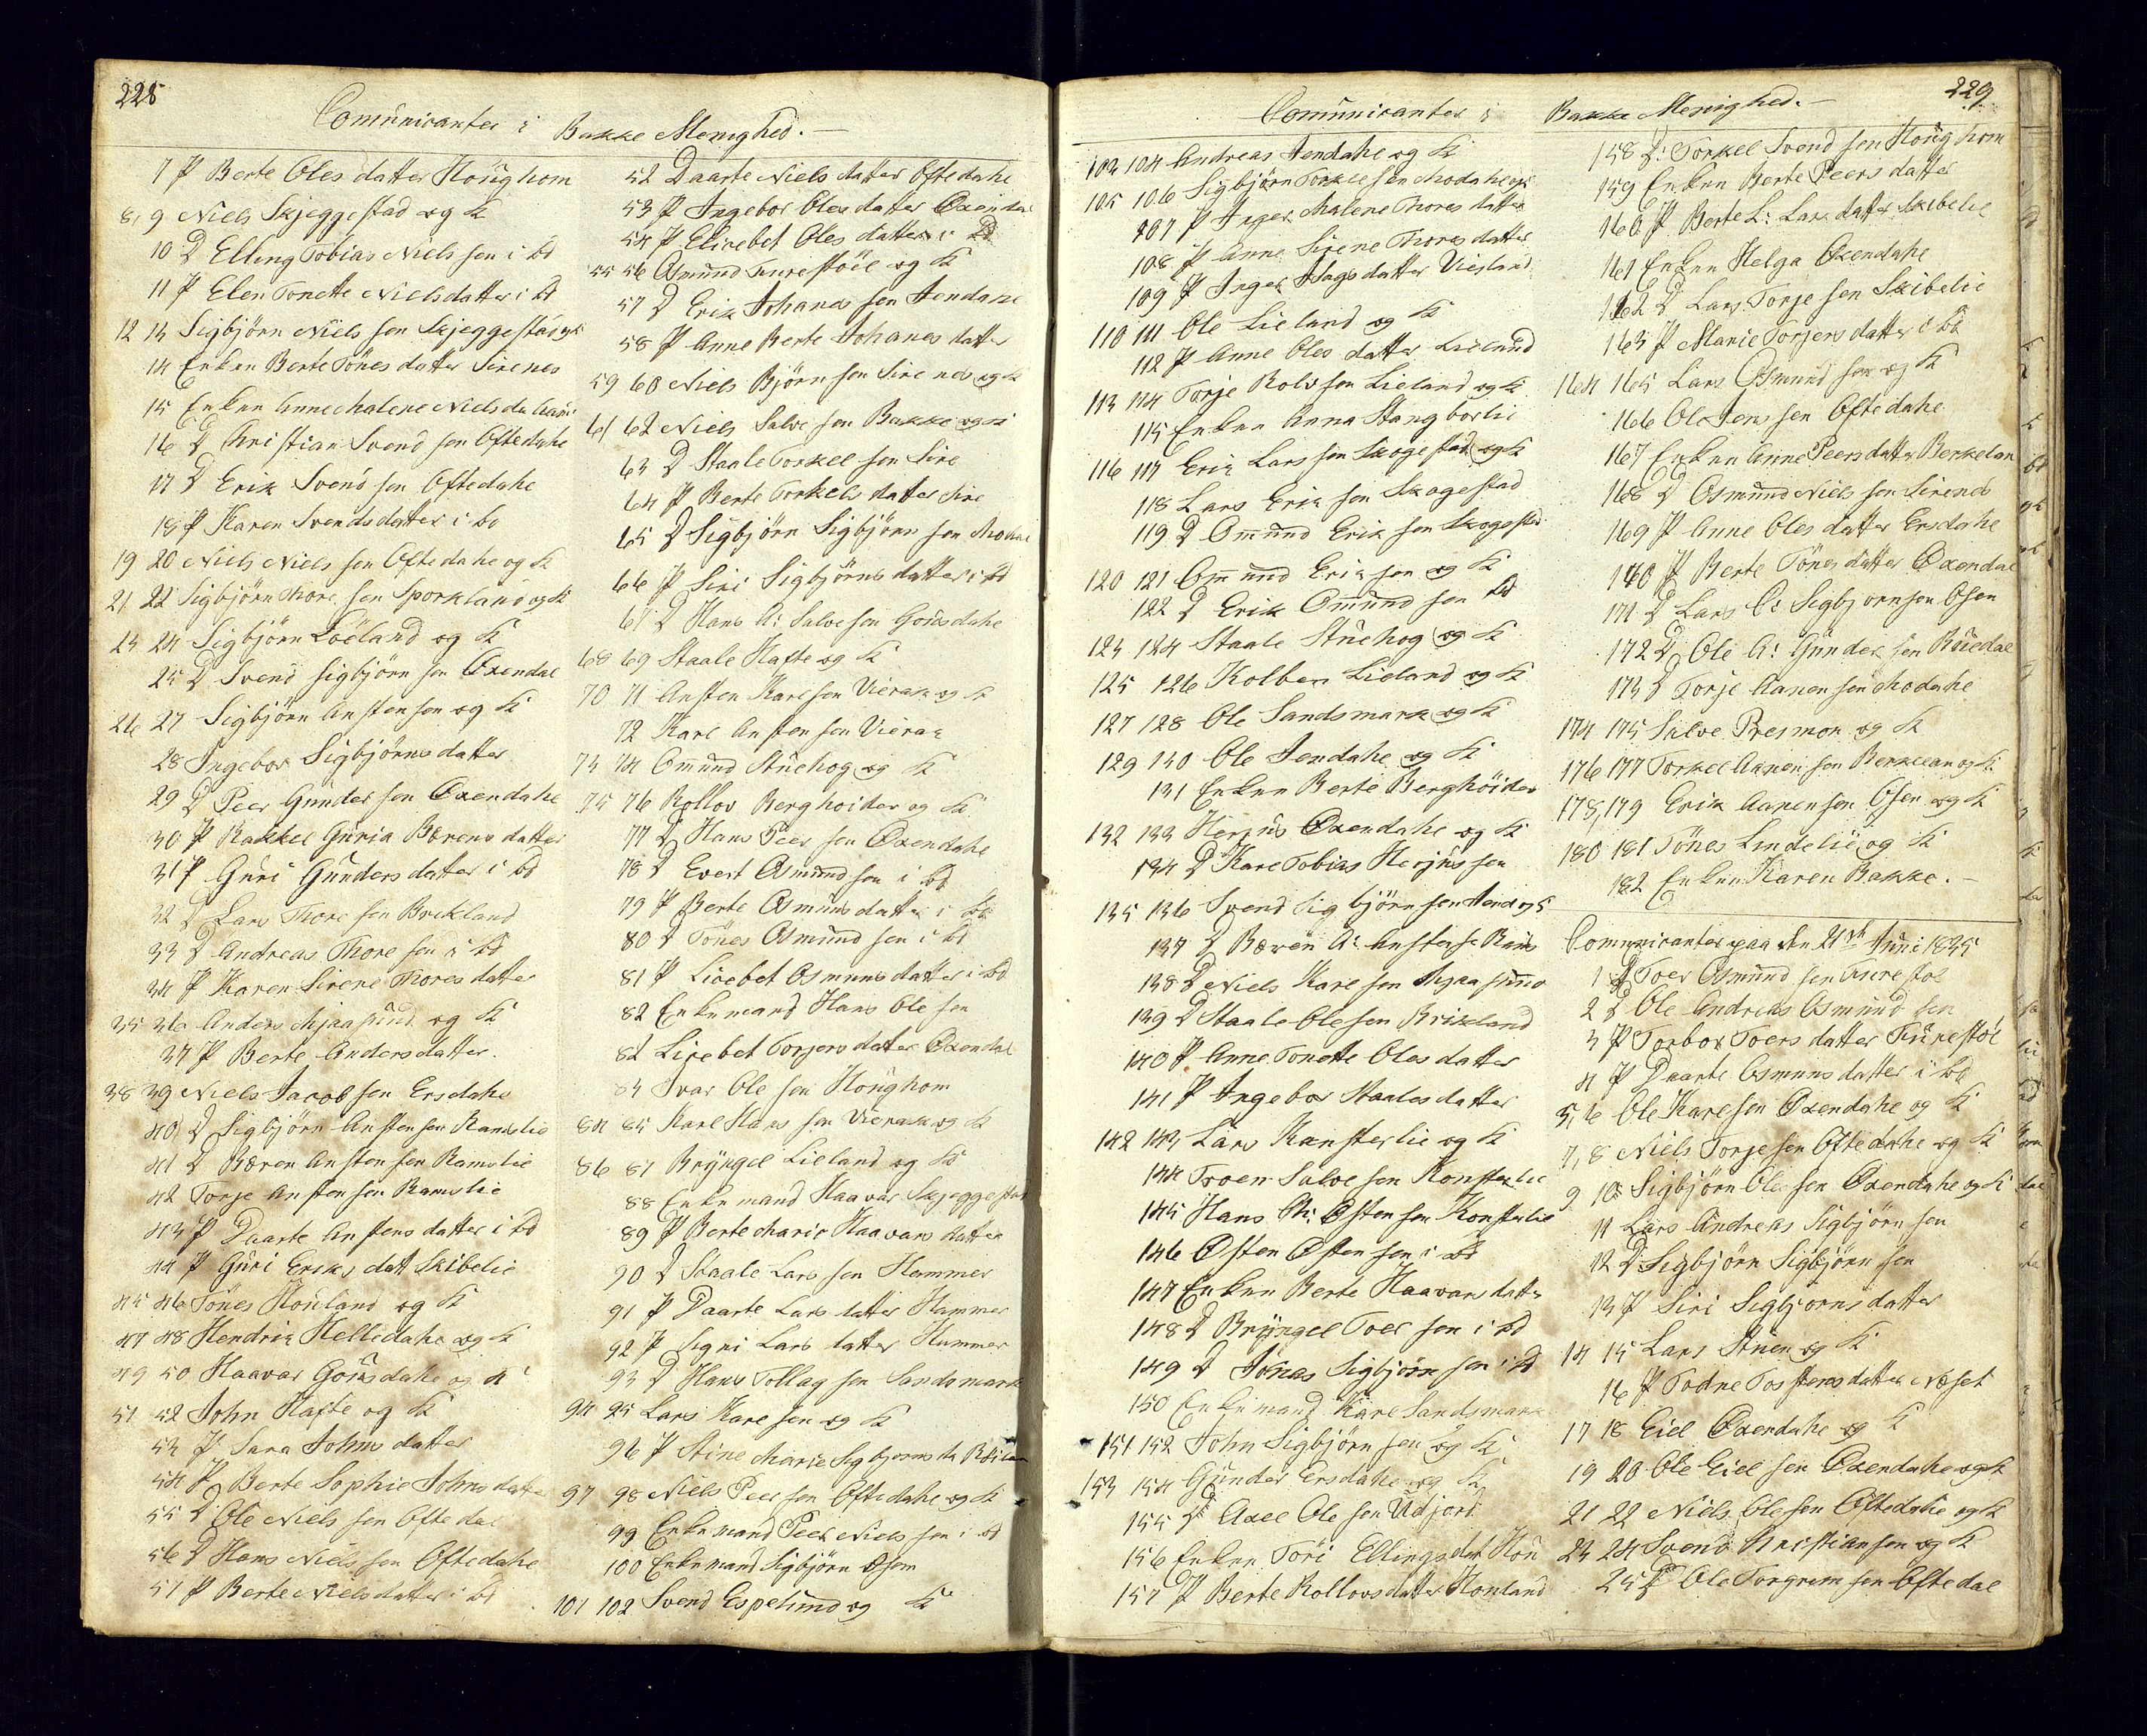 228
Comunicanter i Bakke Menighed. —
7 P Berte Oles datter Houghom
8, 9 Niels Skjeggestad og K
10 D Elling Tobias Niels sen i bd
11 P Elen Tonette Nielsdatter i bd
12 13 Sigbjörn Niels sen Skjeggestad og K
14 Enken Berte Tönes datter Sirenes
15 Enken Anne Malene Niels
16 D Christian Svend sen Oftedahe
17 D Erik Svend sen Oftedahe
18 P Karen Svendsdatter i bd
19 20 Niels Niels sen Oftedahe og K
21 22 Sigbjörn Thore sen Sporkland og K
23 24 Sigbjörn Löeland og K
25 D Svend Sigbjörn sen Oxendal
26 27 Sigbjörn Ansten sen og K
28 Ingebor Sigbjörnsdatter
29 D Peer Gunder sen Oxendahe
30 P Rakkel Guria Bærens datter
31 P Guri Gunders datter i bd
32 D Lars Thore sen Brekland
33 D Andreas Thore sen i bd
34 P Karen Sirene Thores datter
35 36 Anders Mjaasund og K
37 P Berte Andersdatter.
38 39 Niels Jacob sen Ersdahe
40 D Sigbjörn Ansten sen Ramslie
41 D Bæren Ansten sen Ramslie
42 Torje Ansten sen Ramslie
43 P Daarte Anstens datter i bd
44 P Guri Eriks datt Skibelie
45 46 Tönes Houland og K
47 48 Hendrik Helledahe og K
49 50 Haavar Gousdahe og K
51 52 John Hafte og K
53 P Sara Johns datter
54 P Berte Sophie Johns datter
55 D Ole Niels sen Oftedal
56 D Hans Niels sen Oftedahe
57 P Berte Nielsdatter i bd
52 Daarte Niels datter Oftedahe
53 P Ingebor Oles datter Oxendal
54 P Elisebet Oles datter i bd
55 56 Osmund Furestöel og K
57 D Erik Johanes sen Jendahe
58 P Anne Berte Johanes datter
59 60 Niels Björn sen Sirenes og K
61 62 Niels Salve sen Bakke og K
63 D Staale Torkel sen Sire
64 P Berte Torkels datter Sire
65 D Sigbjörn Sigbjörn sen
66 P Siri Sigbjörns datter i bd
67 D Hans A: Salve sen Gousdahe
68 69 Staale Hafte og K
70 71 Ansten Karl sen Vierak og K
72 Karl Ansten sen Vierak
73 74 Omund Stuehog og K
75 76 Rollov Berghoider og K
77 D Hans Peer sen Oxendahe
78 D Evert Osmund sen i bd
79 P Berte Osmuns datter i bd
80 D Tönes Osmund sen i bd
81 P Lisebet Osmuns datter i bd
82 Enkemand Hans Ole sen
82 Lisebet Torjers datter Oxendal
83 Ivar Ole sen Houghom
84 85 Karl Hans sen Vierak og K
86 87 Bryngel Lieland og K
88 Enkemand Haavar Skjeggestad
89 P Berte Marie Haavars datter
90 D Staale Lars sen Hammer
91 P Daarte Lars datter Hammer
92 P Signi Lars datter Hammer
93 D Hans Tollag sen Sandsmark
94 95 Lars Karl sen og K
96 P Stine Marie Sigbjorns
97 98 Niels Peer sen Oftedahe og K
99 Enkemand Peer Niels sen i bd
100 Enkemand Sigbjörn Osen
101 102 Svend Espelund og K
229
Comunicanter i Bakke Menighed. —
103 104 Andreas Jendahe og K
105 106 Sigbjörn Torkel sen Modahe og K
107 P Inger Malene Thores datter
108 P Anne Sirene Thores datter
109 P Inger Aags datter Viesland
110 111 Ole Lieland og K
112 P Anne Oles datter Lieland
113 114 Torje Rolv sen Lieland og K
115 Enken Anna Stangborlie
116 117 Erik Lars sen Skogestad og K
118 Lars Erik sen Skogestad
119 D Omund Erik sen Skogestad
120 121 Omund Erik sen og K
122 D Erik Omund sen bd
123 124 Staale Stuehog og K
125 126 Kolben Lieland og K
127 128 Ole Sandsmark og K
129 130 Ole Jendahe og K
131 Enken Berte Berghöider
132 133 Herjus Oxendahe og K
134 D Karl Tobias Herjus sen
135 136 Svend Sigbjörn sen
137 D Bæren A: Ansten
138 D Niels Karl sen Mjaasund
139 D Staale Ole sen Brikland
140 P Anne Tonette Oles datter
141 P Ingebor Staales datter
142 143 Lars Kansterlie og K
144 Troen Salve sen Konsterlie
145 Hans Osten sen Konsterlie
146 Osten Osten sen i bd
147 Enken Berte Haavars datter
148 D Bryngel Toer sen i bd
149 D Jonas Sigbjörn sen i bd
150 Enkemand Karl Sandsmark
151 152 John Sigbjörn sen og K
153 154 Gunder Ersdahe og K
155 D Axel Ole sen Udjord
156 Enken Töri Ellings dat Hou
157 P Berte Rollovs datter Houland
158 D: Torkel Svend sen Houghom
159 Enken Berte Peers datter
160 P Berte L: Lars datter Skibelie
161 Enken Helga Oxendahe
162 D Lars Torje sen Skibelie
163 P Marie Torjers datter i bd
164 165 Lars Osmund sen og K
166 Ole Jens sen Oftedahe
167 Enken Anne Peers datter Berkelan
168 D Osmund Niels sen Sirenes
169 P Anne Oles datter Ersdahe
170 P Berte Tönes datter Oxendal
171 D Lars O: Sigbjorn sen Osen
172 D Ole A: Gunder sen Röiedal
173 D Torje Aanen sen Modahe
174 175 Salve Presmon og K
176 177 Torkel Aanen sen Berkelan og K
178, 179 Erik Aanen sen Osen og K
180 181 Tönes Lindelie og K
182 Enken Karen Bakke. —
Comunicanter paa den 21de Juni 1835
1 D Toer Osmund sen Furestöl
2 D Ole Andreas Osmund sen
3 P Torbor Toers datter Furestöl
4 P Daarte Osmuns datter i bd
5, 6 Ole Karl sen Oxendahe og K
7, 8 Niels Torje sen Oftedahe og K
9 10 Sigbjörn Ole sen Oxendahe og K
11 Lars Andreas Sigbjörn sen
12 D Sigbjörn Sigbjörn sen
13 P Siri Sigbjorns datter
14 15 Lars Stuen og K
16 P Todne Tostens datter Næset
17 18 Eiel Oxendahe og K
19 20 Ole Eiel sen Oxendahe og K
21 22 Niels Ole sen Oftedahe og K
23 24 Svend Kristian sen og K
25 D Ole Torgrim sen Oftedal